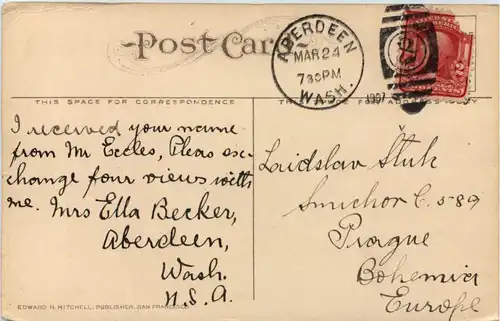 Post Card
ABERDEEN
MAR 24
7 30 PM
1907
WASH.
THIS SPACE FOR CORRESPONDENCE
I received your name
from Mr Eccles, Pleas ex-
change four views with
me. Mrs Ella Becker,
Aberdeen,
Wash.
U.S.A.
Ladislav Štuk
Smichov C. 589
Prague
Bohemia
Europe
EDWARD H. MITCHELL, PUBLISHER, SAN FRANCISCO